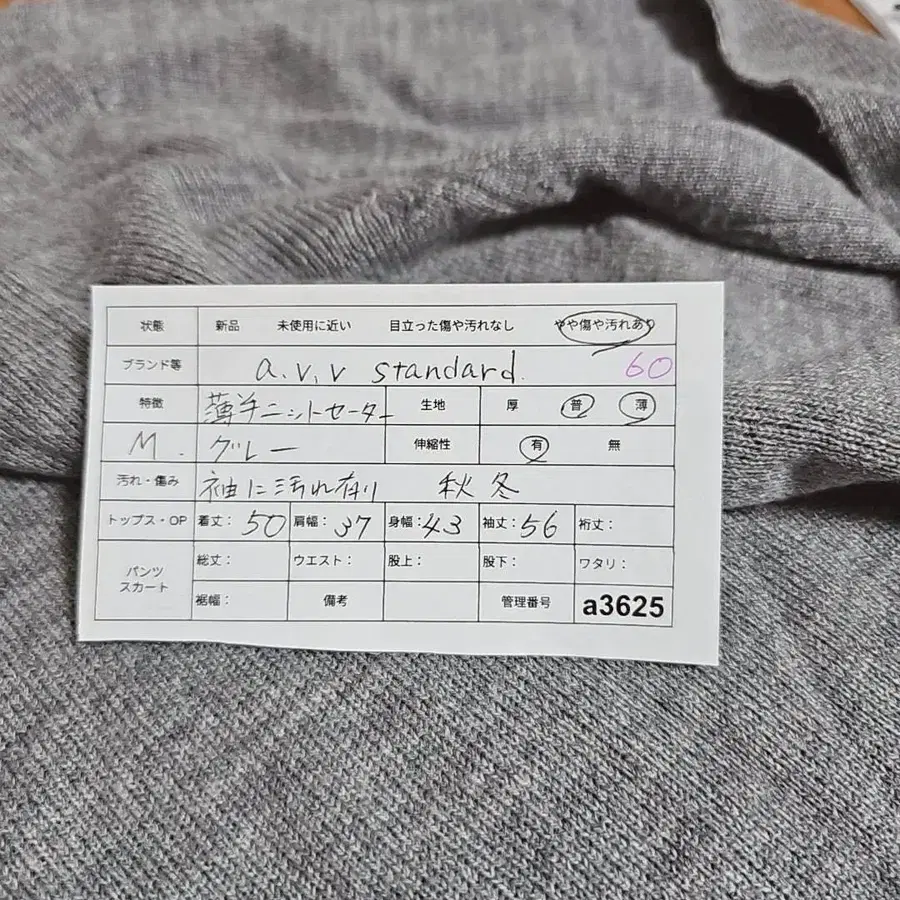 状態 新品 未使用に近い 目立った傷や汚れなし やや傷や汚れあり
ブランド等 a.v.v standard. 60
特徴 薄手ニットセーター 生地 厚 普 薄
M. グレー 伸縮性 有 無
汚れ・傷み 袖に汚れ有り 秋冬
トップス・OP 着丈: 50 肩幅: 37 身幅: 43 袖丈: 56 裄丈:
パンツ スカート 総丈: ウエスト: 股上: 股下: ワタリ:
裾幅: 備考 管理番号 a3625